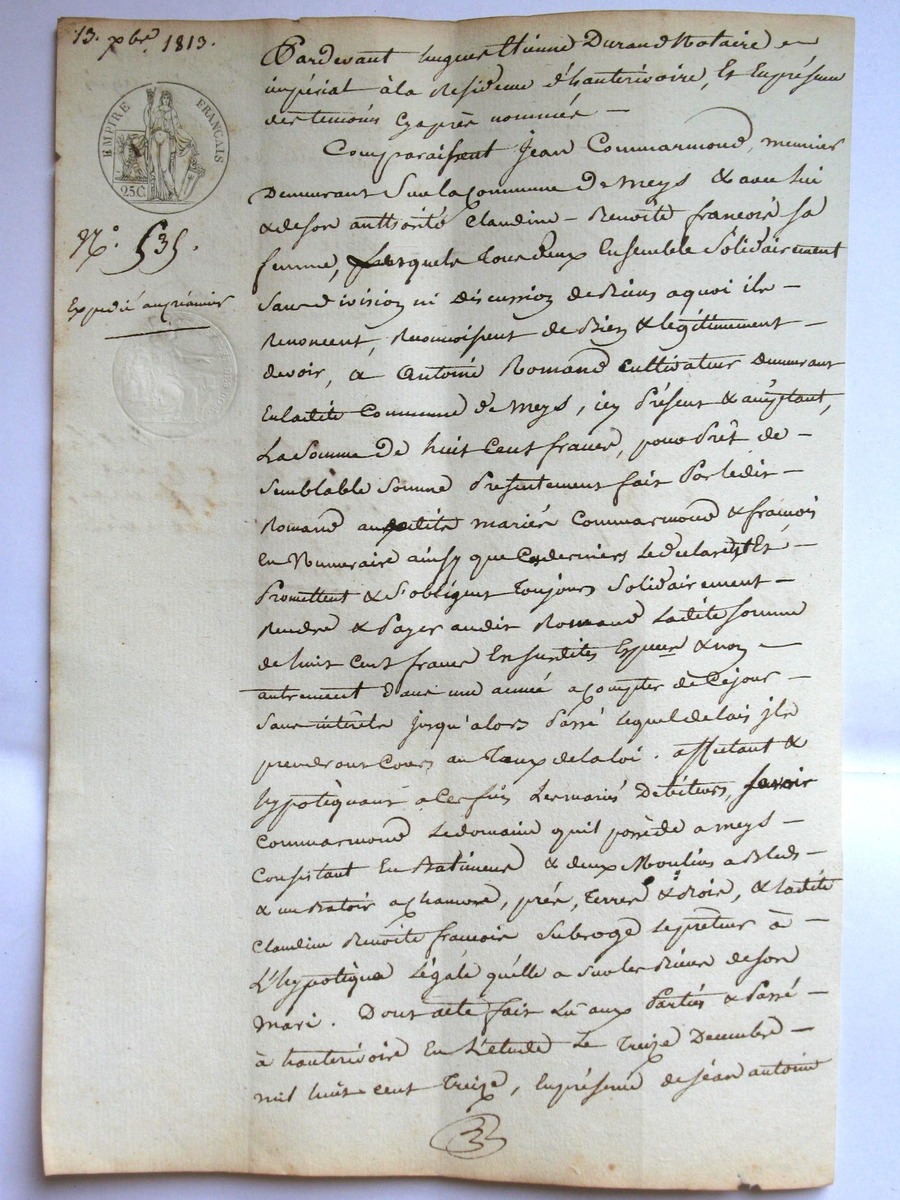 13. xbre. 1813.
EMPIRE FRANÇAIS
25C
No. 535.
Expedié au créancier
Pardevant hugues Etienne Durand Notaire
impérial à la Residence d'hauterivoire, Et En présence
des temoins Cyaprès nommés —
Comparaissent Jean Commarmond, meunier
Demeurant Sur la commune De meys & avec lui
& de son authorité Claudine - Benoite francois sa
femme, Lesquels tous deux Ensemble Solidairement
Sans division ni discussion de Biens a quoi ils -
Renoncent, Reconnoissent de Bien & légitimement -
devoir, a Antoine Romand cultivateur demeurant
En ladite Commune de meys, icy Présent & acceptant,
La Somme De huit Cent francs, pour Prêt de -
Semblable Somme Présentement fait Par ledit -
Romand auxdits mariés Commarmond & francois
En Numeraire ainsy que Ces derniers le declarent Et -
Promettent & S'obligent Toujours Solidairement -
Rendre & Payer audit Romand Ladite Somme
de huit cent francs En Susdites Especes & non -
autrement dans une année a compter de Cejour -
Sans intérêts jusqu'alors Passé lequel delais ils
prendront Cours au Taux de la loi. affectant &
hypotèquant a Ces fins Les mariés Debiteurs, Savoir
Commarmond Le domaine quil possède a meys -
Consistant En Batimens & deux Moulins a Bleds -
& un Batoir a Chanvre, prés, Terres & Bois, & ladite
Claudine Benoite francois Subroge Le prêteur à -
L'hypotèque Légale qu'elle a Sur les Biens de son
mari. Dont acte fait Lû aux Parties & Passé -
à hauterivoire En L'etude Le Treize Decembre -
mil huit cent Treize, En présence de Jean antoine